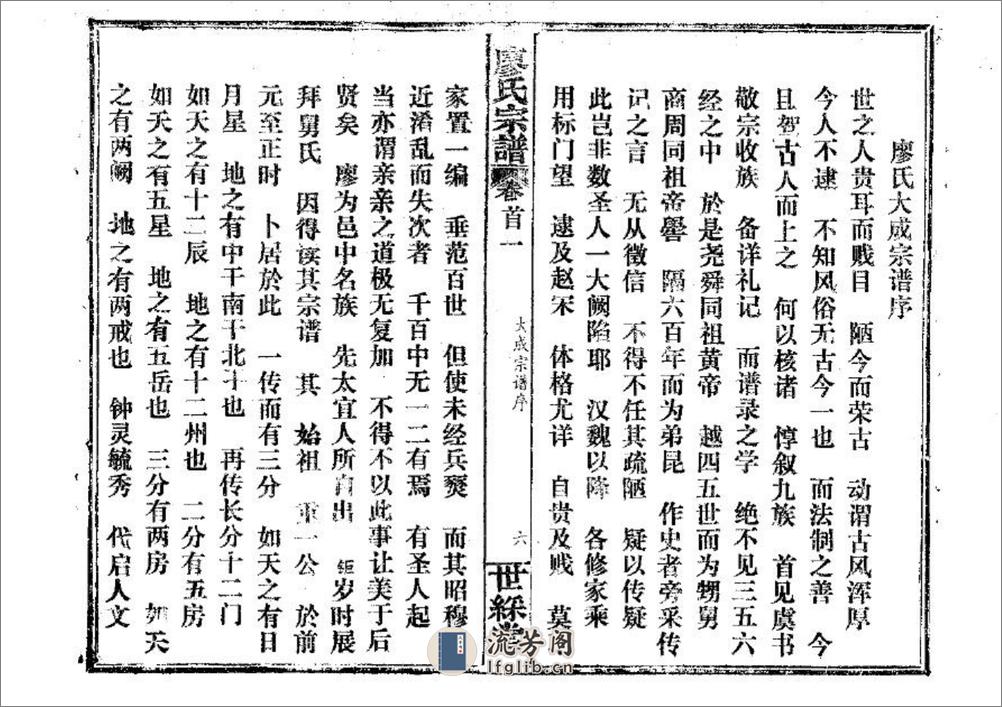 廖氏大成宗谱序
世之人贵耳而贱目 陋今而荣古 动谓古风浑厚
今人不逮 不知风俗无古今一也 而法制之善 今
且驾古人而上之 何以核诸 惇叙九族 首见虞书
敬宗收族 备详礼记 而谱录之学 绝不见三五六
经之中 於是尧舜同祖黄帝 越四五世而为甥舅
商周同祖帝喾 隔六百年而为弟昆 作史者旁采传
记之言 无从徵信 不得不任其疏陋 疑以传疑
此岂非数圣人一大阙陷耶 汉魏以降 各修家乘
用标门望 逮及赵宋 体格尤详 自贵及贱 莫
廖氏宗譜 卷首一
大成宗谱序
六
世綵堂
家置一编 垂范百世 但使未经兵燹 而其昭穆
近淆乱而失次者 千百中无一二有焉 有圣人起
当亦谓亲亲之道极无复加 不得不以此事让美于后
贤矣 廖为邑中名族 先太宜人所自出 钜岁时展
拜舅氏 因得读其宗谱 其始祖 重一公 於前
元至正时 卜居於此 一传而有三分 如天之有日
月星 地之有中干南干北干也 再传长分十二门
如天之有十二辰 地之有十二州也 二分有五房
如天之有五星 地之有五岳也 三分有两房 如天
之有两阙 地之有两戒也 钟灵毓秀 代启人文
流芳阁
lfglib.cn